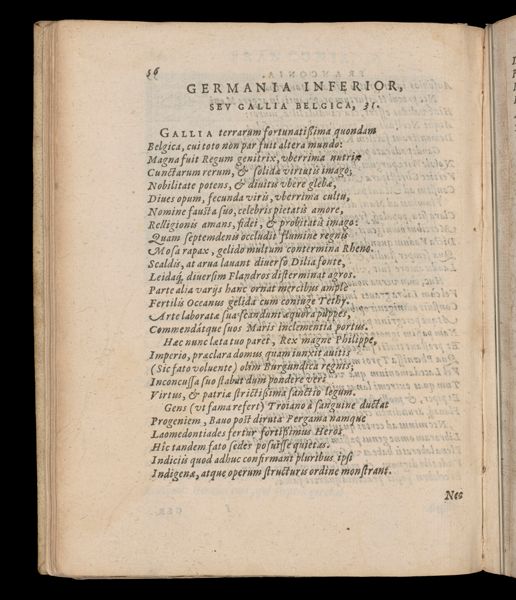 56
GERMANIA INFERIOR,
SEV GALLIA BELGICA, 31.
GALLIA terrarum fortunatißima quondam
Belgica, cui toto non par fuit altera mundo:
Magna fuit Regum genitrix, vberrima nutrix
Cunctarum rerum, & solida virtutis imago;
Nobilitate potens, & diuitis vbere glebæ,
Diues opum, fecunda viris, vberrima cultu,
Nomine fausta suo, celebris pietatis amore,
Relligionis amans, fidei, & probitatis imago:
Quam septemdenis occludit flumine regnis
Mosa rapax, gelido multum contermina Rheno.
Scaldis, at arua lauant diuerso Dilia fonte,
Leidaq́; diuersim Flandros disterminat agros.
Parte alia varijs hanc ornat mercibus ample
Fertilis Oceanus gelida cum coniuge Tethy.
Arte laboratæ sua scandunt æquora puppes,
Commendátque suos Maris inclementia portus.
Hæc nunc læta tuo paret, Rex magne Philippe,
Imperio, præclara domus quam iunxit auitis
(Sic fato voluente) olim Burgundica regnis;
Inconcussa suo stabat dum pondere veri
Virtus, & patria strictißima sanctio legum.
Gens (vt fama refert) Troiano à sanguine ductat
Progeniem, Bauo post diruta Pergama namque
Laomedontiades fertur fortißimus Heros
Hîc tandem fato sedes posuisse quietas.
Indicijs quod adhuc confirmant pluribus ipsi
Indigenæ, atque operum structuris ordine monstrant.
Nec